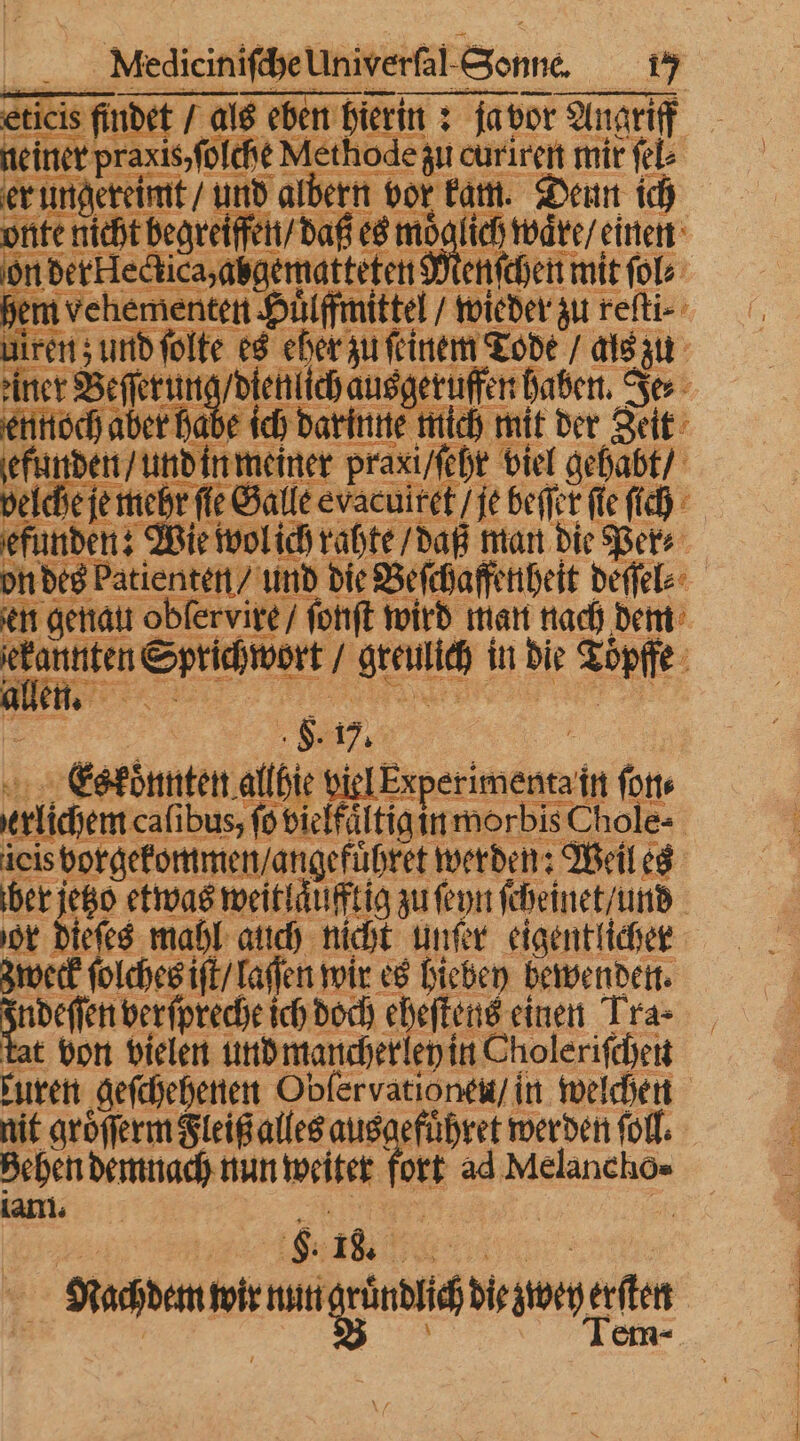 Mediciniſche Univerſal-Sonne. 17
eticis findet / als eben hierin : ja vor Angriff
neiner praxis, ſolche Methode zu curiren mir ſel⸗
er ungereimt / und albern vor kam. Denn ich
onte nicht begreiffen / daß es moͤglich waͤre / einen
on der Hectica, abgematteten Menſchen mit ſol⸗
hem vehementen Huͤlffmittel / wieder zu reſti-
uiren; und ſolte es eher zu ſeinem Tode / als zu
einer Beſſerung / dienlich ausgeruffen haben. Je⸗
ennoch aber habe ich darinne mich mit der Zeit
efunden / und in meiner praxi / ſehr viel gehabt /
velche je mehr ſie Galle evacuiret / je beſſer ſie ſich
efunden: Wie wol ich rahte / daß man die Per⸗
on des Patienten / und die Beſchaffenheit deſſel⸗
en genau obſervire / ſonſt wird man nach dem
ekannten Sprichwort / greulich in die Toͤpffe
allen.
§. 17.
Es koͤnnten allhie viel Experimenta in ſon⸗
erlichem caſibus, ſo vielfaͤltig in morbis Chole-
icis vorgekommen / angefuͤhret werden: Weil es
ber jetzo etwas weitlaͤufftig zu ſeyn ſcheinet / und
or dieſes mahl auch nicht unſer eigentlicher
zweck ſolches iſt / laſſen wir es hiebey bewenden.
Indeſſen verſpreche ich doch eheſtens einen Tra-
tat von vielen und mancherley in Choleriſchen
Curen geſchehenen Obſervationen / in welchen
nit groͤſſerm Fleiß alles ausgefuͤhret werden ſoll.
Gehen demnach nun weiter fort ad Melancho-
iam.
§. 18.
Nachdem wir nun gruͤndlich die zwey erſten
B Tem-